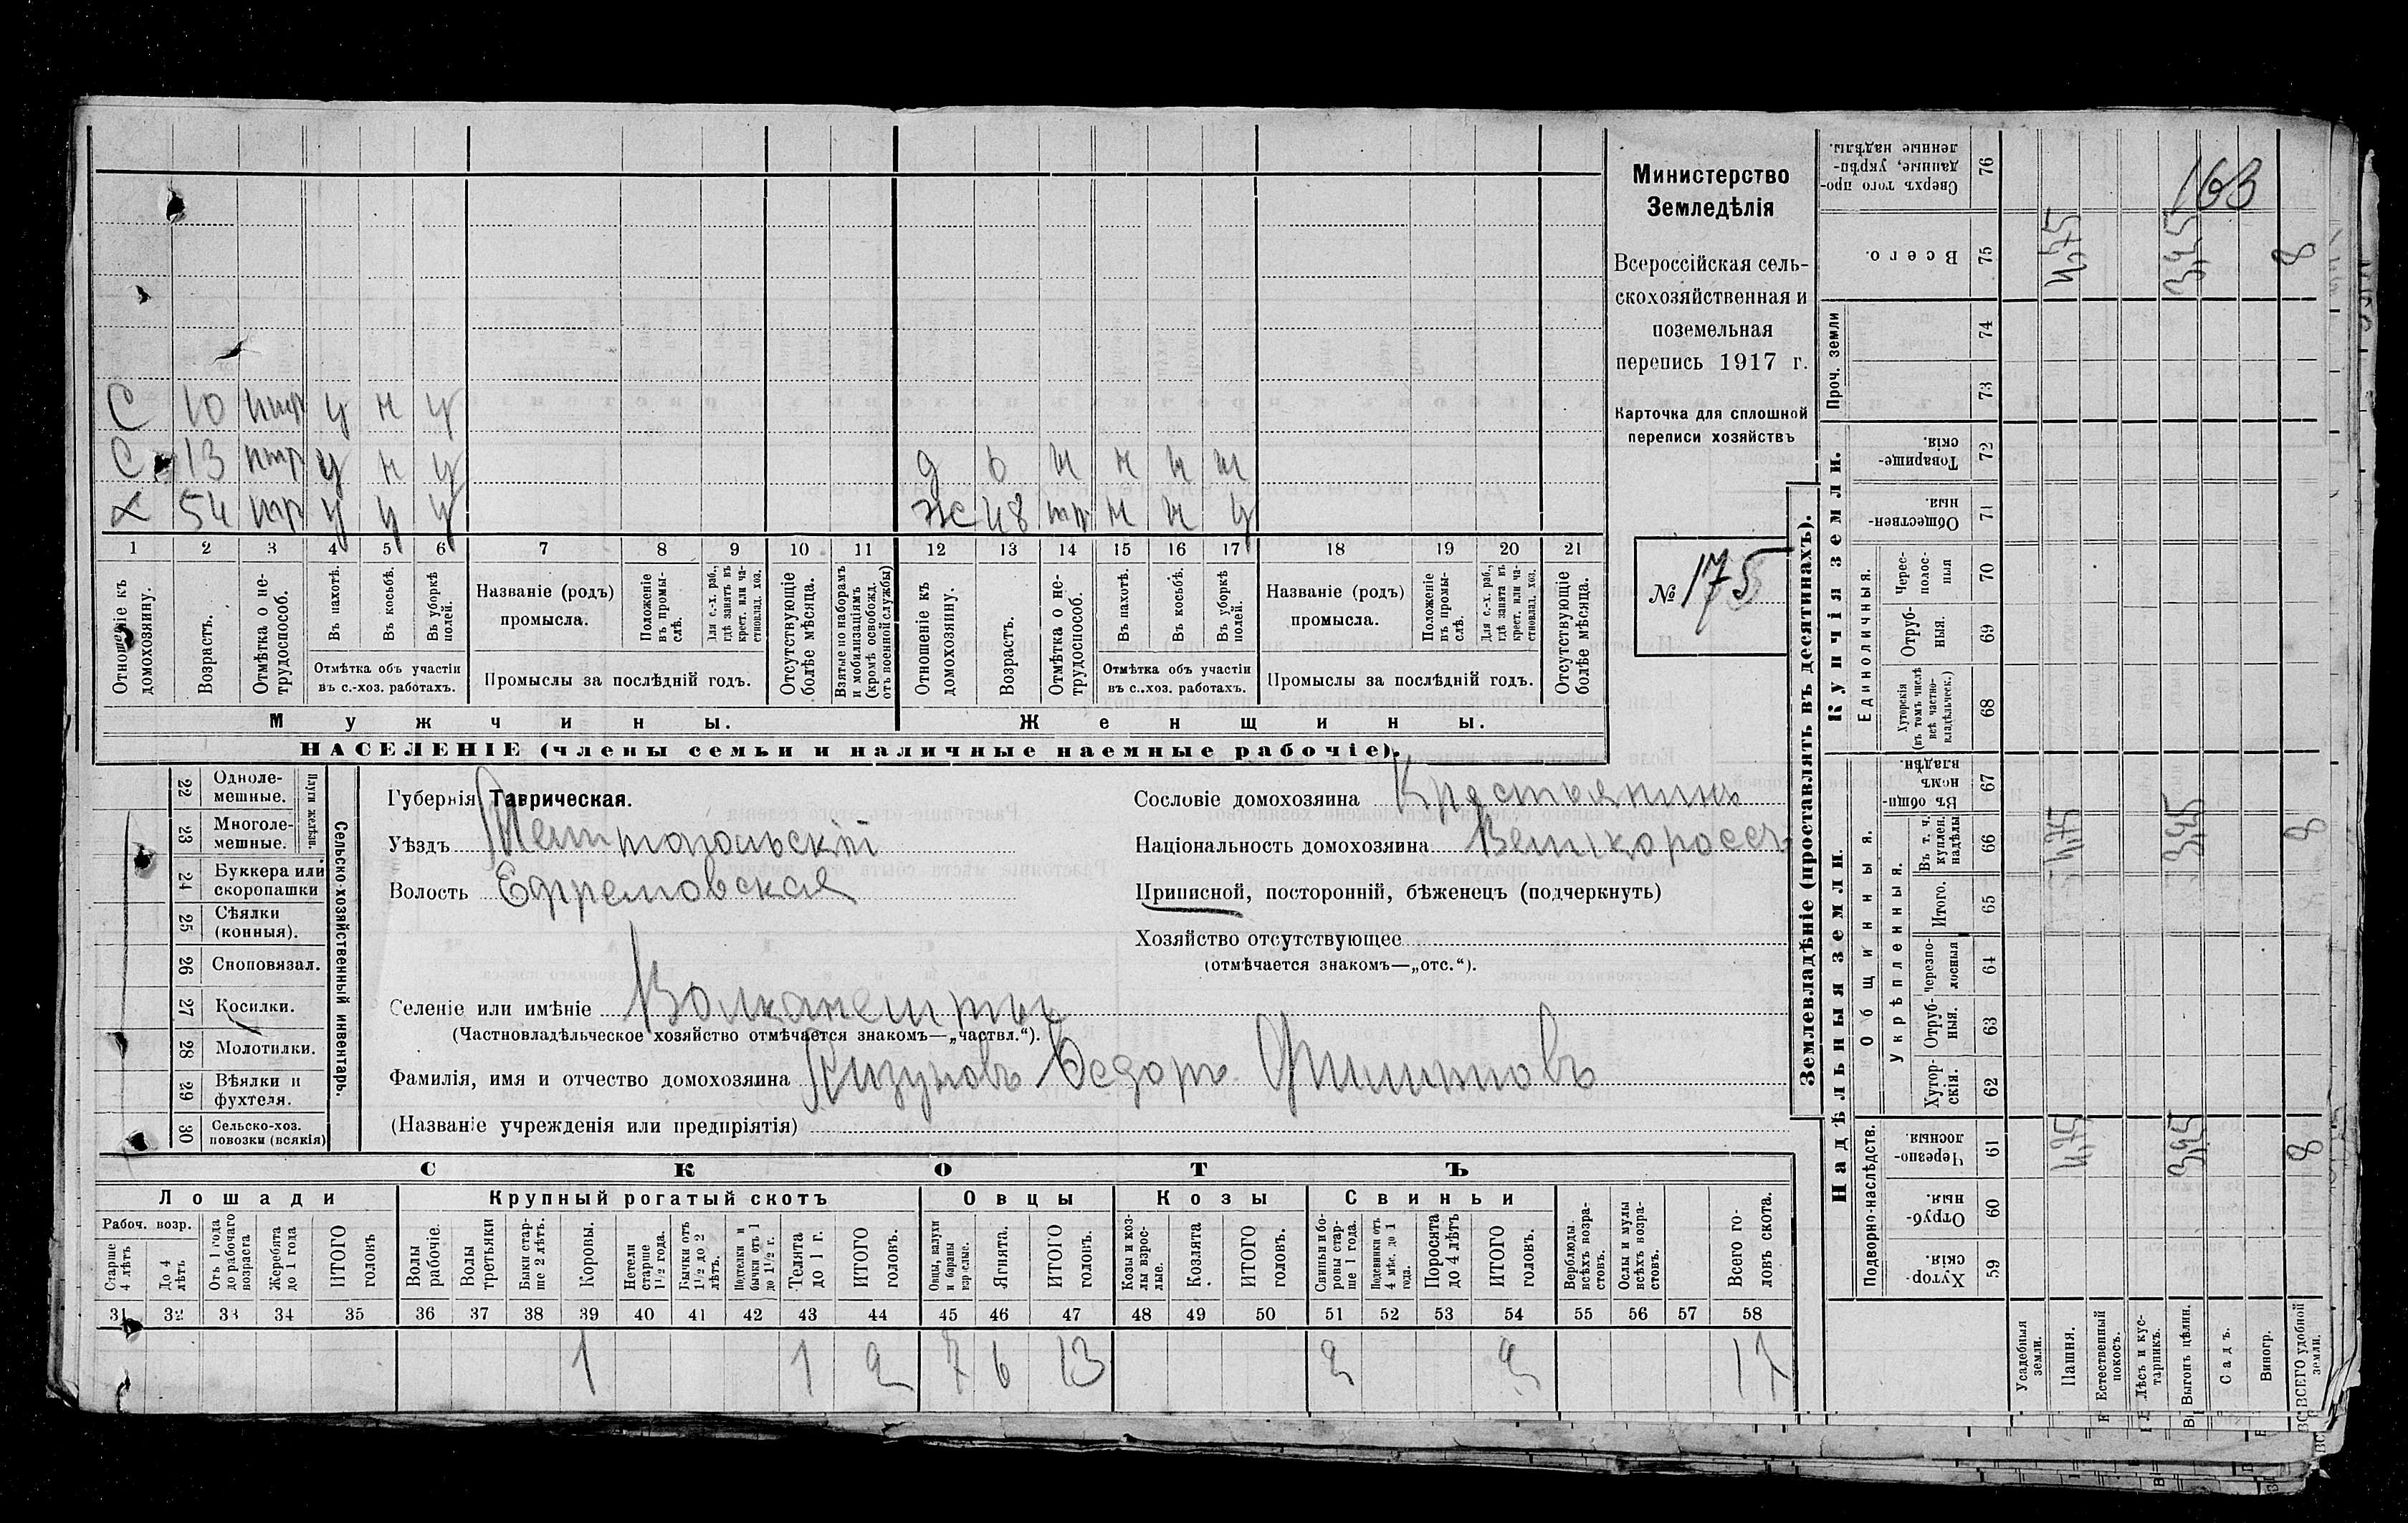 163
Министерство
Земледѣлія
Всероссійская сель-
скохозяйственная и
поземельная
перепись 1917 г.
Карточка для сплошной
переписи хозяйствъ
№ 175
С 10 нтр у н у
С 13 нтр у н у
Х 54 тр у у у
д 6 н н н н
ж 48 тр н н у
1 2 3 4 5 6 7 8 9 10 11 12 13 14 15 16 17 18 19 20 21
Отношеніе къ домохозяину.
Возрастъ.
Отмѣтка о не-трудоспособ.
Въ пахотѣ.
Въ косьбѣ.
Въ уборкѣ полей.
Отмѣтка объ участіи въ с.-хоз. работахъ.
Названіе (родъ) промысла.
Положеніе въ промы-слѣ.
Для с.-х. раб., гдѣ занятъ въ крест. или ча-стновлад. хоз.
Промыслы за послѣдній годъ.
Отсутствующіе болѣе мѣсяца.
Взятые по наборамъ и мобилизаціямъ (кромѣ освобожд. отъ военной службы)
Отношеніе къ домохозяину.
Возрастъ.
Отмѣтка о не-трудоспособ.
Въ пахотѣ.
Въ косьбѣ.
Въ уборкѣ полей.
Отмѣтка объ участіи въ с.-хоз. работахъ.
Названіе (родъ) промысла.
Положеніе въ промы-слѣ.
Для с.-х. раб., гдѣ занята въ крест. или ча-стновлад. хоз.
Промыслы за послѣдній годъ.
Отсутствующіе болѣе мѣсяца.
Мужчины. Женщины.
НАСЕЛЕНІЕ (члены семьи и наличные наемные рабочіе).
22 Одноле-мешные.
23 Многоле-мешные.
Плуги желѣзн.
24 Буккера или скоропашки
25 Сѣялки (конныя).
26 Сноповязал.
27 Косилки.
28 Молотилки.
29 Вѣялки и фухтеля.
30 Сельско-хоз. повозки (всякія)
Сельско-хозяйственный инвентарь.
Губернія Таврическая.
Уѣздъ Мелитопольскій
Волость Ефремовская
Селеніе или имѣніе Волканешты
(Частновладѣльческое хозяйство отмѣчается знакомъ—„частвл.“).
Фамилія, имя и отчество домохозяина Кизуновъ Федоръ Филипповъ
(Названіе учрежденія или предпріятія)
Сословіе домохозяина Крестьянинъ
Національность домохозяина Великороссъ
Приписной, посторонній, бѣженецъ (подчеркнуть)
Хозяйство отсутствующее
(отмѣчается знакомъ—„отс.“).
СКОТЪ
Лошади
Крупный рогатый скотъ
Овцы
Козы
Свиньи
Рабоч. возр.
Старше 4 лѣтъ
До 4 лѣтъ
Отъ 1 года до рабочаго возраста
Жеребята до 1 года
ИТОГО головъ
Волы рабочіе.
Волы третьяки
Быки стар-ше 2 лѣтъ.
Коровы.
Нетели старше 1½ года.
Бычки отъ 1½ до 2 лѣтъ.
Подтелки и бычки отъ 1 до 1½ г.
Телята до 1 г.
ИТОГО головъ.
Овцы, валухи и бараны взрослые.
Ягнята.
ИТОГО головъ.
Козы и коз-лы взрос-лые.
Козлята
ИТОГО головъ.
Свиньи и бо-ровы стар-ше 1 года.
Подсвинки отъ 4 мѣс. до 1 года.
Поросята до 4 лѣтъ
ИТОГО головъ.
Верблюды всѣхъ возра-стовъ.
Ослы и мулы всѣхъ возра-стовъ.
Всего го-ловъ скота.
31 32 33 34 35 36 37 38 39 40 41 42 43 44 45 46 47 48 49 50 51 52 53 54 55 56 57 58
1 1 2 7 6 13 2 2 17
Землевладѣніе (проставлять въ десятинахъ).
Надѣльныя земли.
Купчія земли.
Проч. земли
Подворно-наслѣдств.
Общинныя.
Укрѣпленныя.
Единоличныя.
59 Хутор-скія.
60 Отруб-ныя.
61 Черезпо-лосныя.
62 Хутор-скія.
63 Отруб-ныя.
64 Черезпо-лосныя
65 Итого.
66 Въ т. ч. куплен. надѣлы
67 Въ общи-номъ владѣн.
68 Хуторскія (въ томъ числѣ всѣ частно-владѣльческ.)
69 Отруб-ныя.
70 Черес-полос-ныя
71 Обществен-ныя.
72 Товарище-скія.
73
74
75 Всего.
76 Сверхъ того про-данные, укрѣп-ленные надѣлы.
Усадебныя земли.
Пашня.
Естественный покосъ.
Лѣсъ и кус-тарникъ.
Выгонъ цѣлин.
Садъ.
Виногр.
ВСЕГО удобной земли.
4,75 4,75 4,75
3,25 3,25 3,25
8 8 8